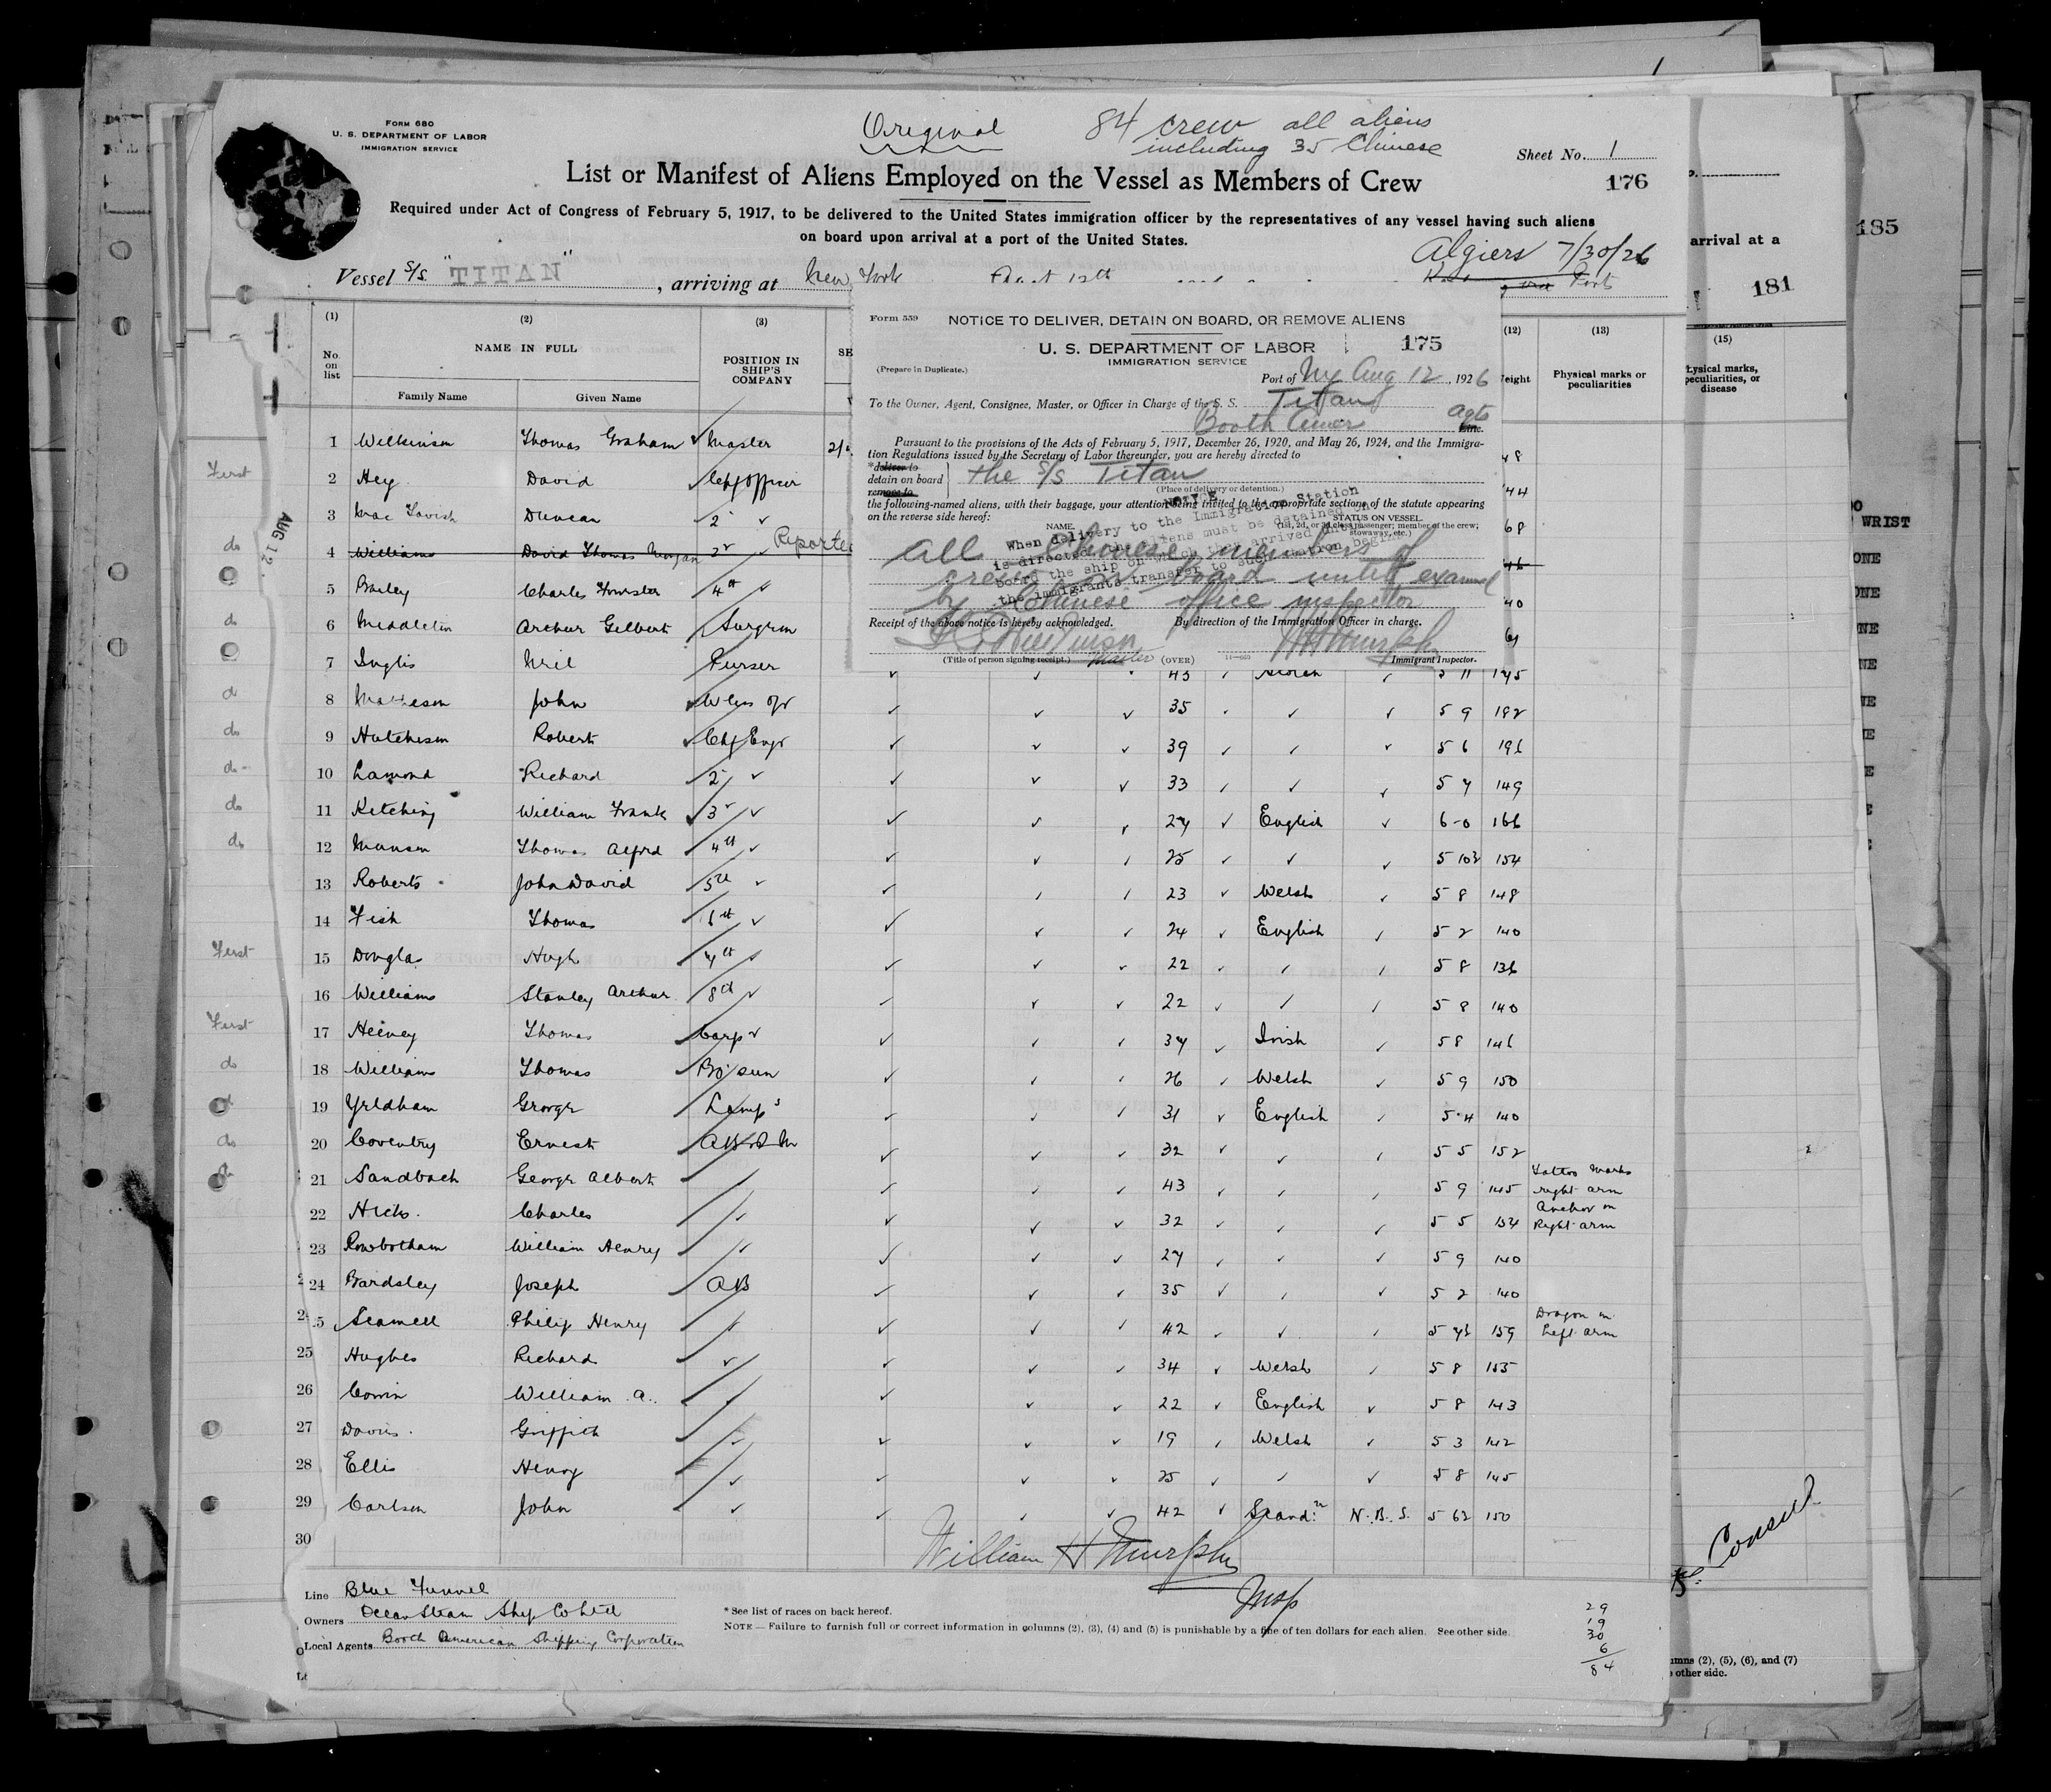 FORM 680
U. S. DEPARTMENT OF LABOR
IMMIGRATION SERVICE
Original
84 crew all aliens
including 35 Chinese
Sheet No. 1
176
List or Manifest of Aliens Employed on the Vessel as Members of Crew
Required under Act of Congress of February 5, 1917, to be delivered to the United States immigration officer by the representatives of any vessel having such aliens
on board upon arrival at a port of the United States.
Algiers 7/30/26
Vessel S/S. "TITAN", arriving at New York
(1) (2) (3) (12) (13)
No. on list
NAME IN FULL
Family Name Given Name
POSITION IN SHIP'S COMPANY
Physical marks or peculiarities
Form 559
NOTICE TO DELIVER, DETAIN ON BOARD, OR REMOVE ALIENS
U. S. DEPARTMENT OF LABOR 175
IMMIGRATION SERVICE
(Prepare in Duplicate.)
Port of NY Aug 12, 1926
To the Owner, Agent, Consignee, Master, or Officer in Charge of the S. S. Titan
Booth Amer agts
Pursuant to the provisions of the Acts of February 5, 1917, December 26, 1920, and May 26, 1924, and the Immigra-
tion Regulations issued by the Secretary of Labor thereunder, you are hereby directed to
*deliver to
detain on board the S/S Titan
remove to
(Place of delivery or detention.)
the following-named aliens, with their baggage, your attention being invited to the appropriate sections of the statute appearing
on the reverse side hereof:
NAME. STATUS ON VESSEL.
(1st, 2d, or 3d class passenger; member of the crew;
stowaway, etc.)
NOTICE
When delivery to the Immigration Station
is directed, the aliens must be detained on
board the ship on which they arrived until
the immigrants transfer to such station begins
All Chinese members of
crew on board until examined
by Chinese office inspector
Receipt of the above notice is hereby acknowledged. By direction of the Immigration Officer in charge.
(Title of person signing receipt.) Master (OVER) Immigrant Inspector.
1 Wilkinson Thomas Graham Master
First 2 Hey David Chf Officer 44
3 Mac Tavish Duncan 2 68
do 4 Williams David Thomas Morgan 3
5 Bailey Charles 4th 40
do 6 Middleton Arthur Gilbert Surgeon
7 Inglis Neil Purser 43 5 11
d 8 Matheson John Wless Opr 35 5 9 192
do 9 Hutchison Robert Chf Engr 39 5 6 196
do 10 Lamond Richard 2 33 5 7 149
do 11 Ketching William Frank 3 27 English 6-0 166
do 12 Manson Thomas Alfred 4th 25 154
13 Roberts John David 5th 23 Welsh 5 8 148
14 Fish Thomas 6th 24 English 5 2 140
First 15 Douglas Hugh 7th 22 5 8 136
16 Williams Stanley Arthur 8th 22 5 8 140
First 17 Heiney Thomas Carp 37 Irish 5 8 146
do 18 Williams Thomas Bo'sun 26 Welsh 5 9 150
19 Yeldham George Lamps 31 English 5-4 140
do 20 Coventry Ernest 32 5 5 152
21 Sandbach George Albert 43 5 9 145 Tattoo Marks right arm
22 Hicks Charles 32 5 5 154 Anchor on Right arm
23 Rowbotham William Henry 27 5 9 140
24 Bardsley Joseph AB 35 5 2 140
Philip Henry 42 159 Dragon on Left arm
25 Hughes Richard 34 Welsh 5 8 155
26 William A. 22 English 5 8 143
27 Davies Griffith 19 Welsh 5 3 142
28 Ellis Henry 25 5 8 145
29 Carlson John 42 N.B.S. 150
30
William H Murphy
Insp
Line Blue Funnel
Owners Ocean Steam Ship Co Ltd
Local Agents Booth American Shipping Corporation
* See list of races on back hereof.
NOTE — Failure to furnish full or correct information in columns (2), (3), (4) and (5) is punishable by a fine of ten dollars for each alien. See other side.
29
19
30
6
84
AUG 12
arrival at a
181
185
(15)
WRIST
Consul
(2), (5), (6), and (7)
other side.